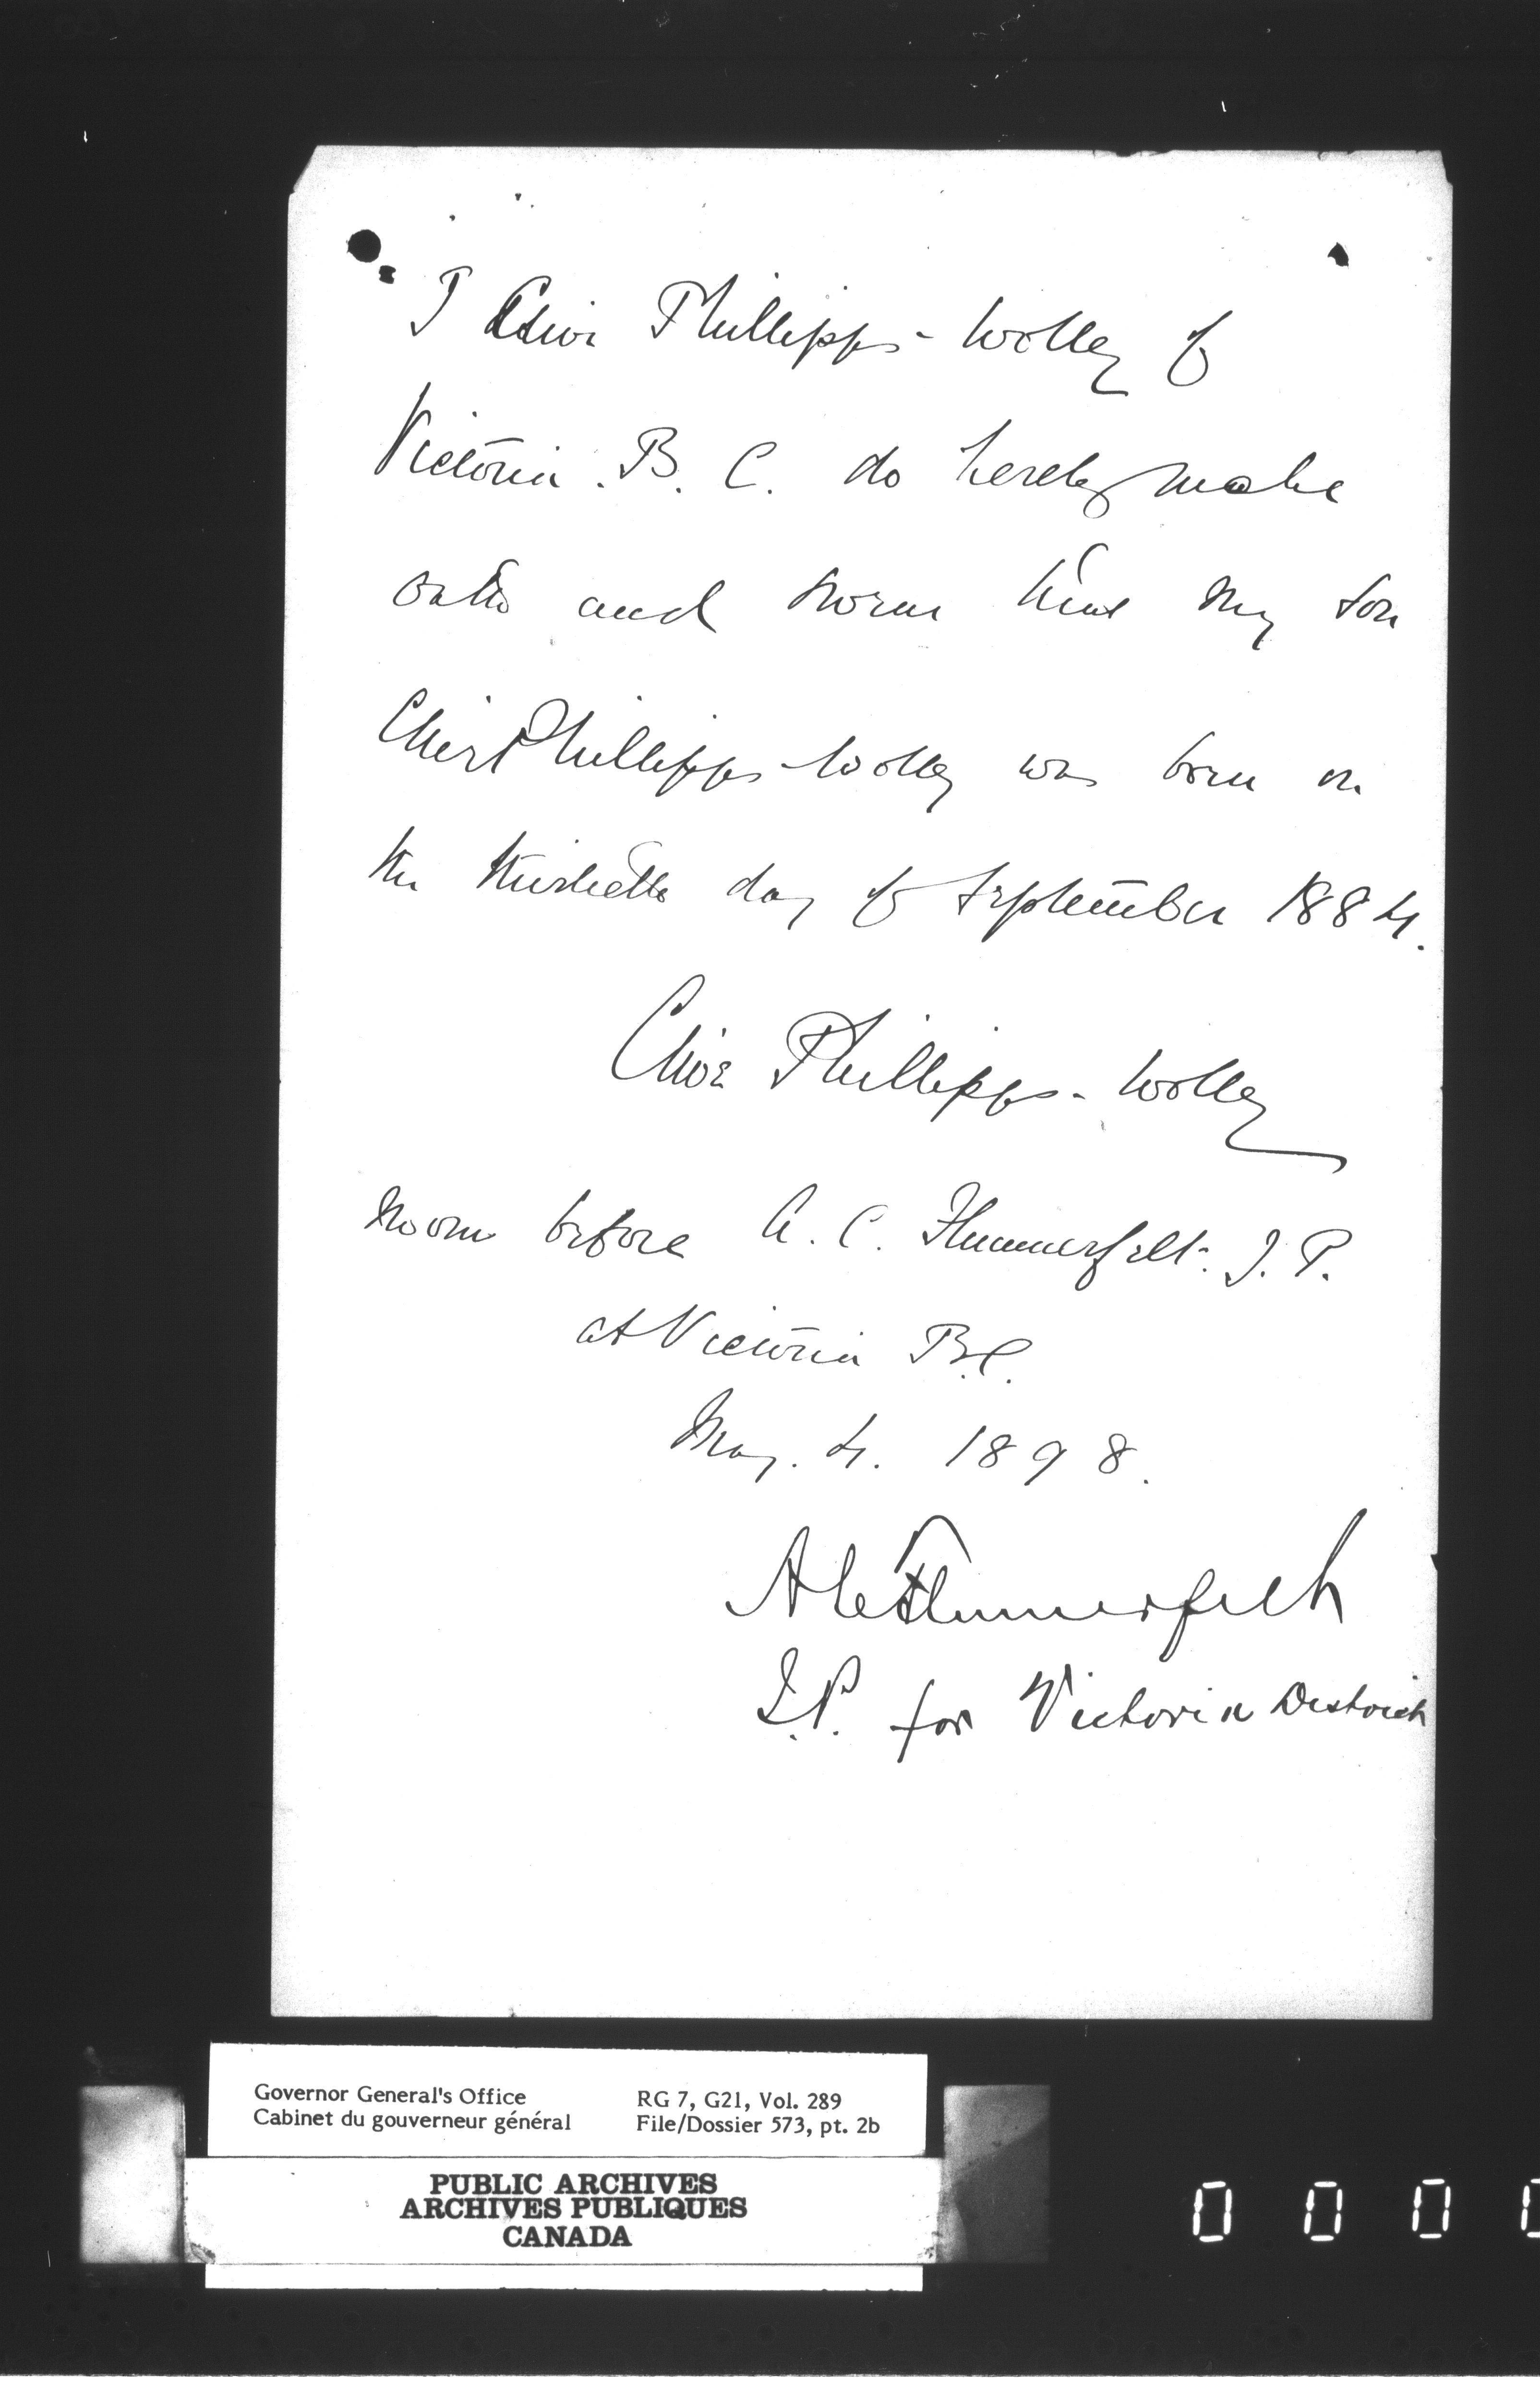 I Clive Phillipps-Wolley of
Victoria. B. C. do hereby make
oath and swear that my son
Clive Phillipps-Wolley was born on
the thirtieth day of September 1884.
Clive Phillipps-Wolley
Sworn before A. C. Flumerfelt. J. P.
at Victoria B.C.
May. 4. 1898.
A C Flumerfelt
J.P. for Victoria District
Governor General's Office
Cabinet du gouverneur général
RG 7, G21, Vol. 289
File/Dossier 573, pt. 2b
PUBLIC ARCHIVES
ARCHIVES PUBLIQUES
CANADA
0 0 0